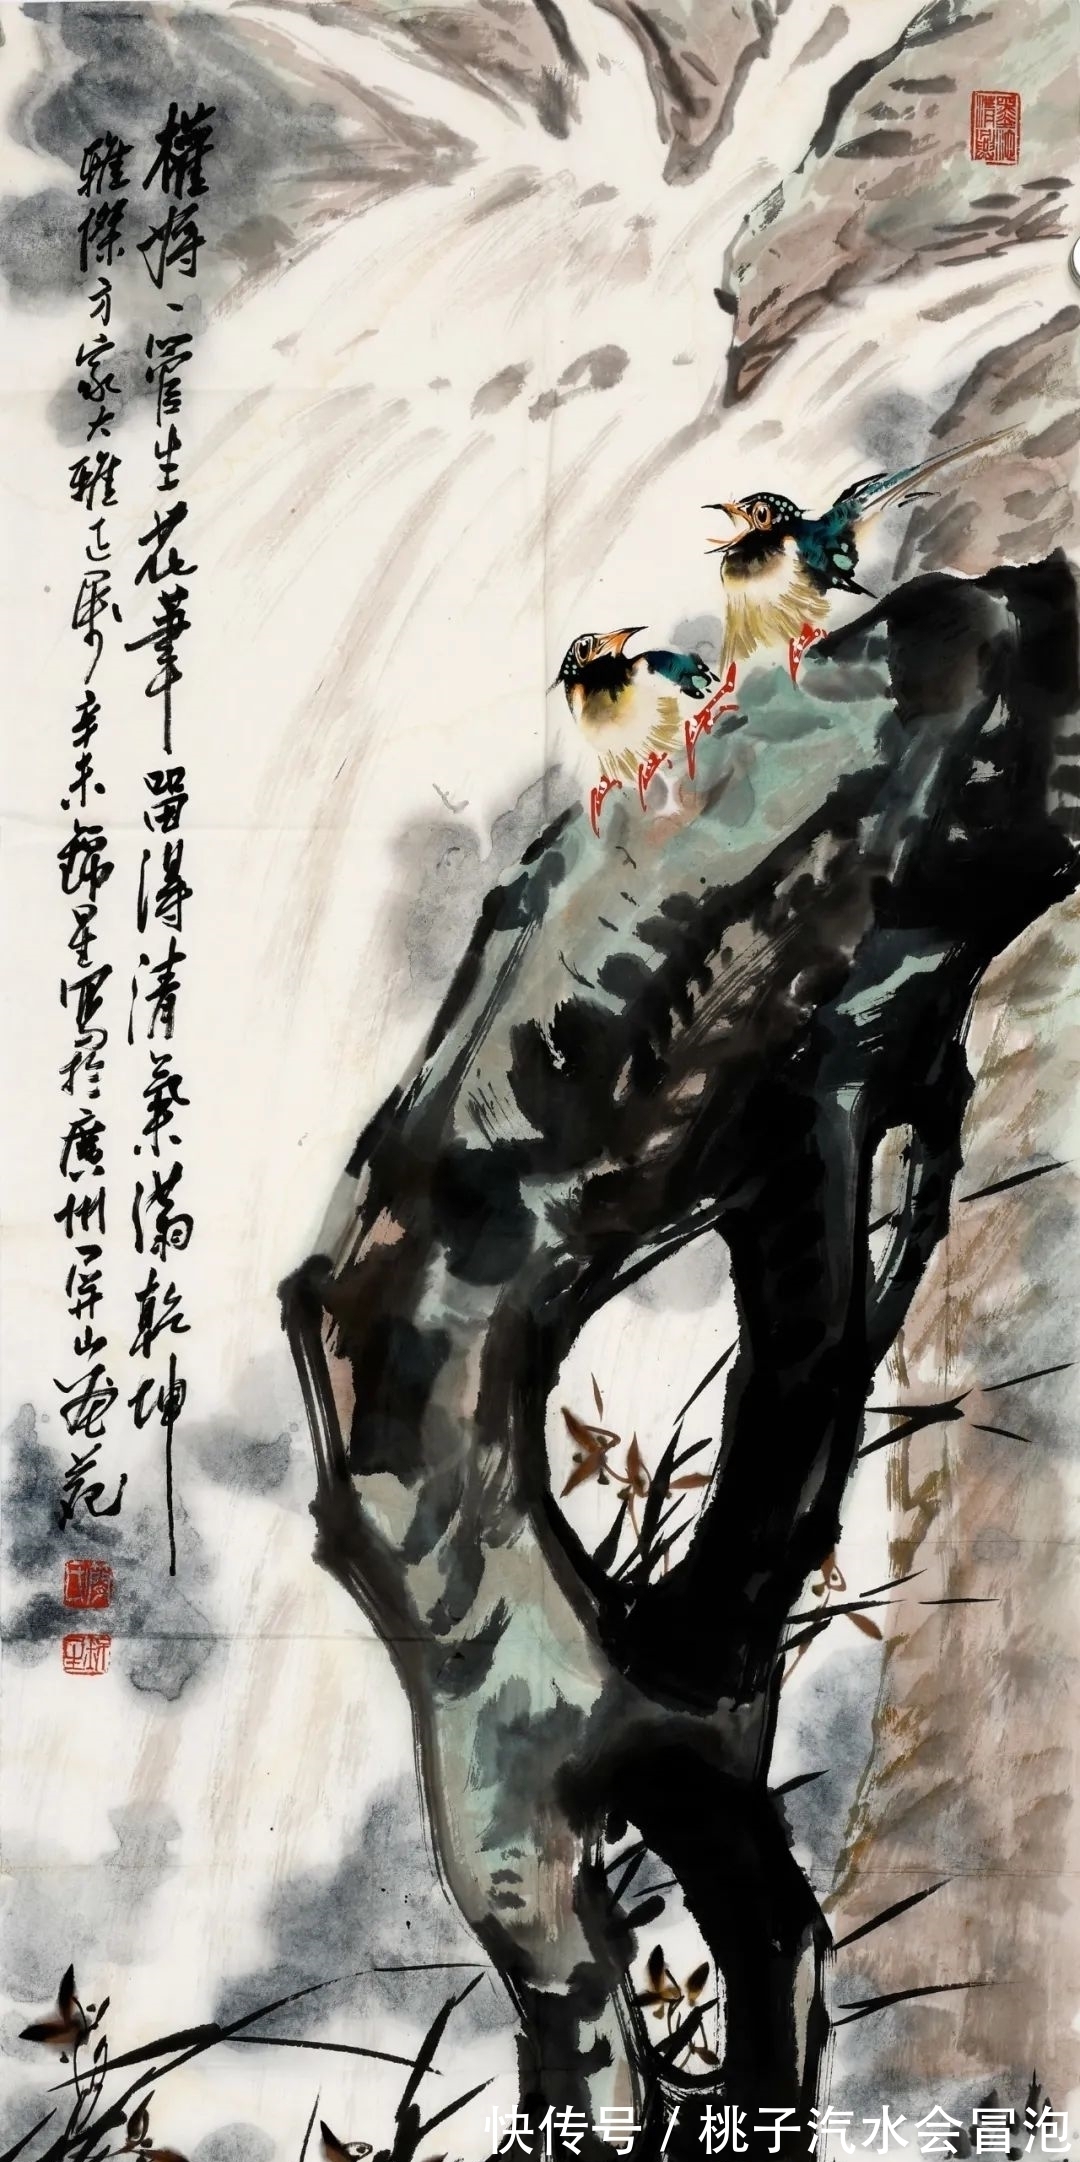 權將一管生花筆留得清氣滿乾坤
雅傑方家大雅正屬辛未錦星寫於廣州屏山畫苑
快传号 / 桃子汽水会冒泡